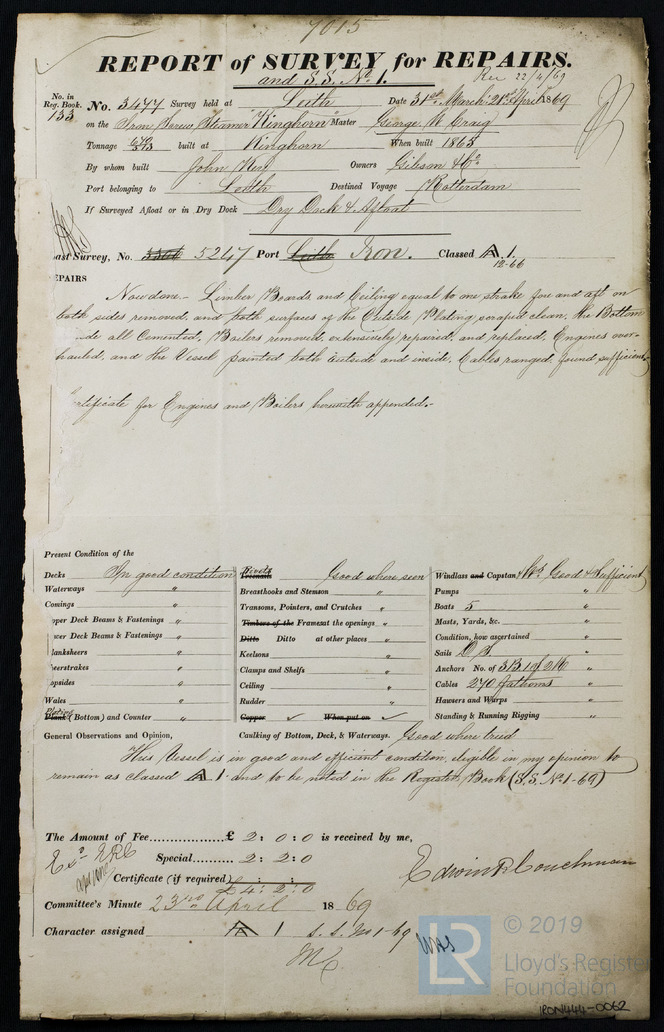 7015
REPORT of SURVEY for REPAIRS.
and S.S. No. 1.
Rec 22/4/69
No. in Reg. Book. 133
No. 3477 Survey held at Leith Date 31st March 21st April 1869
on the Iron Screw Steamer "Kinghorn" Master George W. Craig
Tonnage built at Kinghorn When built 1865
By whom built John Key Owners Gibson & Co.
Port belonging to Leith Destined Voyage Rotterdam
If Surveyed Afloat or in Dry Dock Dry Dock & Afloat
ast Survey, No. 5247 Port Leith Iron. Classed A 1.
12-66
EPAIRS
Now done.- Limber Boards and Ceiling equal to one strake fore and aft on
both sides removed, and both surfaces of the Outside Plating scraped clean, the Bottom
de all Cemented, Boilers removed, extensively repaired, and replaced, Engines over-
hauled, and the Vessel painted both outside and inside, Cables ranged, found sufficient
rtificate for Engines and Boilers herewith appended.-
Present Condition of the
Decks In good condition
Waterways "
Comings "
pper Deck Beams & Fastenings "
wer Deck Beams & Fastenings "
lanksheers "
heerstrakes "
opsides "
Wales "
Plating
Plank (Bottom) and Counter "
Rivets
Treenails Good where seen
Breasthooks and Stemson "
Transoms, Pointers, and Crutches "
Timbers of the Frames at the openings "
Ditto Ditto at other places "
Keelsons "
Clamps and Shelfs "
Ceiling "
Rudder "
Copper ✓ When put on ✓
Windlass and Capstan & Wh. Good & Sufficient
Pumps "
Boats 5 "
Masts, Yards, &c. "
Condition, how ascertained "
Sails "
Anchors No. of 3B. 1S. 2K "
Cables 270 fathoms "
Hawsers and Warps "
Standing & Running Rigging "
General Observations and Opinion, Caulking of Bottom, Deck, & Waterways. Good where tried
This Vessel is in good and efficient condition, eligible in my opinion to
remain as classed A 1 and to be noted in the Register Book (S.S. No 1-69)
The Amount of Fee................£ 2 : 0 : 0 is received by me,
Special.......... 2 : 2 : 0
Certificate (if required)
£4 : 2 : 0
Edwin R Couchman
Committee's Minute 23rd April 1869
Character assigned A 1 S.S. No 1-69
© 2019
LR
Lloyd's Register
Foundation
IRON444-0062